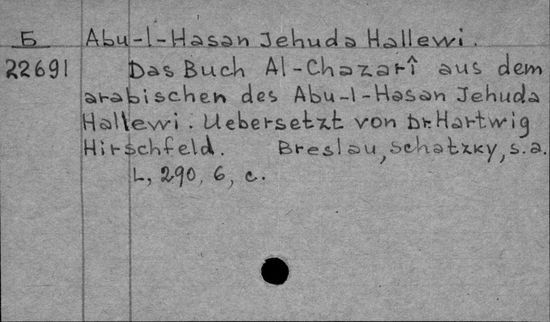 Б Abu-l-Hasan Jehuda Hallewi.
22691 Das Buch Al-Chazarî aus dem
arabischen des Abu-l-Hasan Jehuda
Hallewi. Uebersetzt von Dr. Hartwig
Hirschfeld. Breslau, Schatzky, s.a.
L, 290, 6, c.